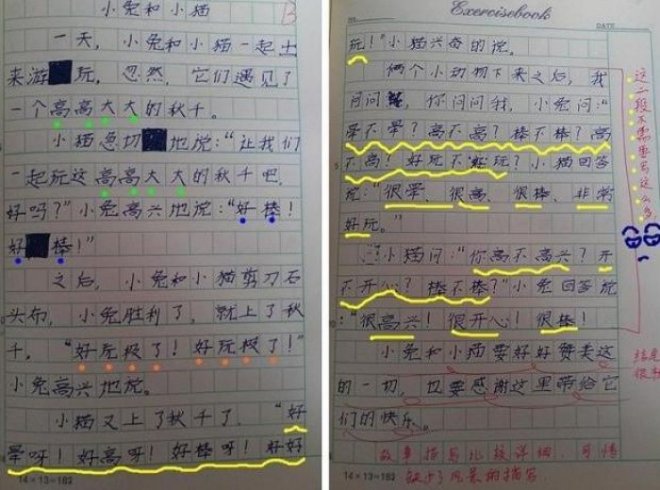 小兔和小猫
B
一天，小兔和小猫一起出
来游玩，忽然，它们遇见了
一个高高大大的秋千。
小猫急切地说：“让我们
一起玩这高高大大的秋千吧，
好吗？”小兔高兴地说：“好棒！
好棒！”
之后，小兔和小猫剪刀石
头布，小兔胜利了，就上了秋
千。“好玩极了！好玩极了！”
小兔高兴地说。
小猫又上了秋千了。“好
晕呀！好高呀！好棒呀！好好
14×13=182
Exercisebook
DATE
玩！”小猫兴奋的说。
俩个小动物下来之后，我
问问你，你问问我，小兔问：“
晕不晕？高不高？棒不棒？高
不高！好玩不好玩？小猫回答
说：“很晕、很高、很棒、非常
好玩。”
小猫问：“你高不高兴？开
不开心？棒不棒？”小兔回答说
：“很高兴！很开心！很棒！
小兔和小猫要好好赞美这
的一切，也要感谢这里带给它
们的快乐。
这二段不需要写这么多
结尾
很好
故事描写比较详细，可惜
缺少了风景的描写
14×13=182